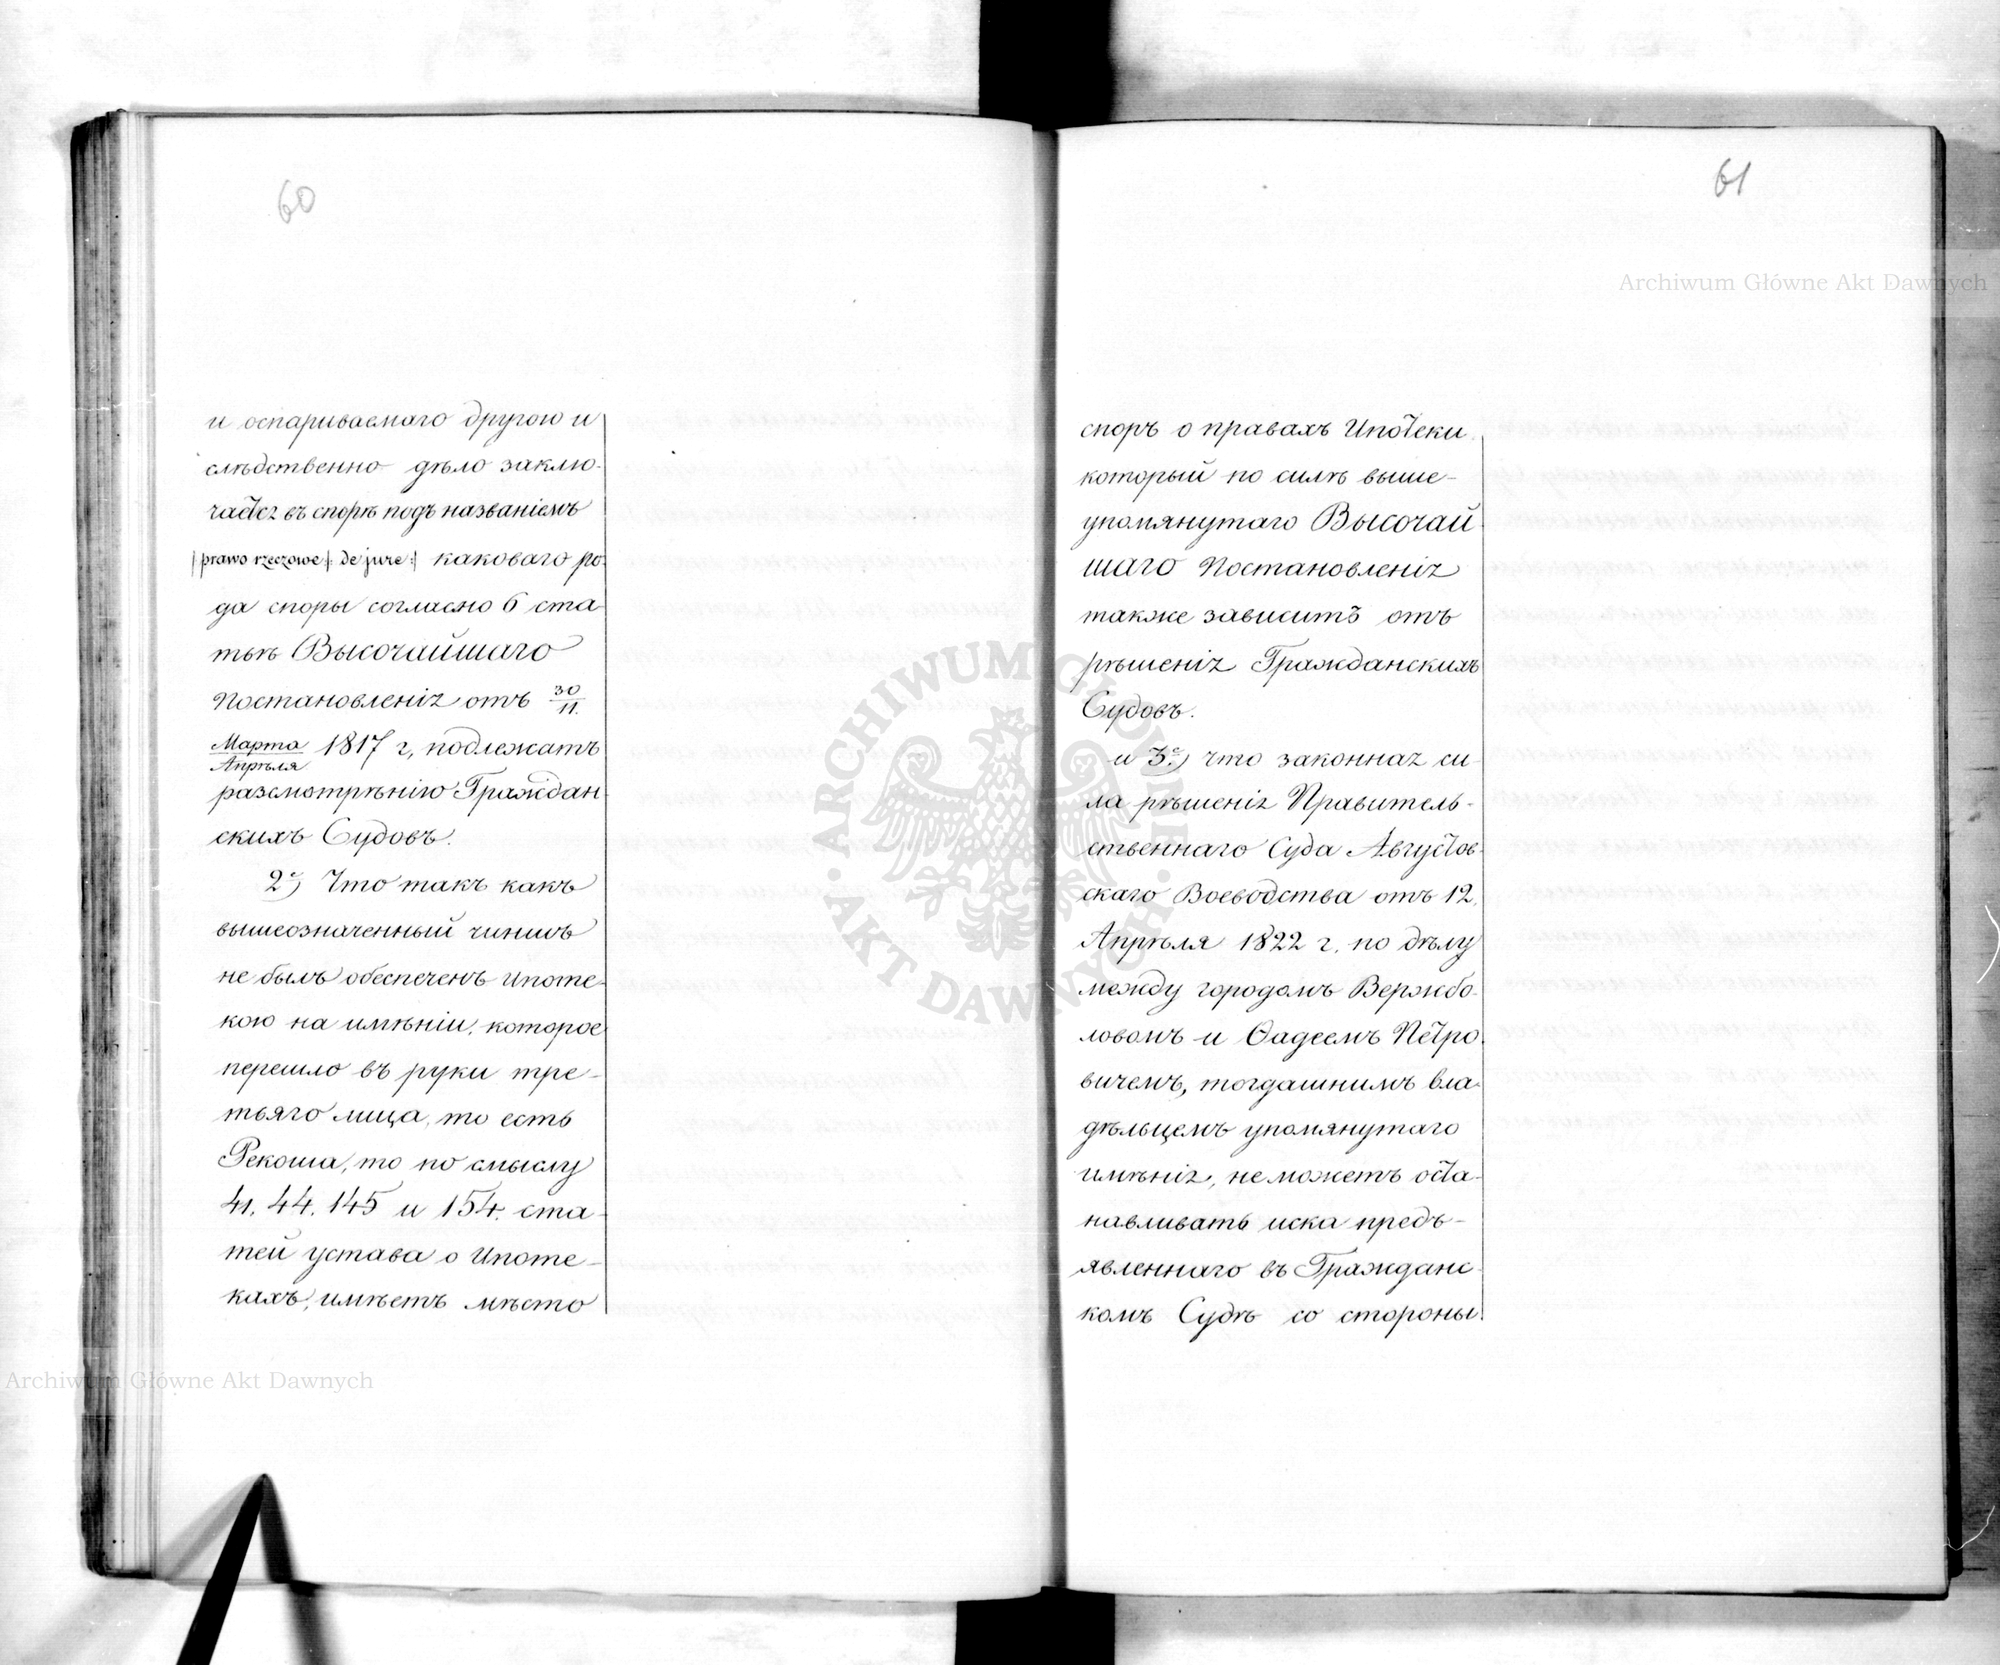 60
и оспариваемаго другою и
слѣдственно дѣло заклю-
чается въ спорѣ подъ названіемъ
|prawo rzeczowe|: de jure:| каковаго ро-
да споры согласно 6 ста-
тьѣ Высочайшаго
Постановленія отъ 30/11.
Марта/Апрѣля 1817 г, подлежатъ
разсмотрѣнію Граждан-
скихъ Судовъ.
2е) Что такъ какъ
вышеозначенный чиншъ
не былъ обеспеченъ ипоте-
кою на имѣніи, которое
перешло въ руки тре-
тьяго лица, то есть
Рекоша, то по смыслу
41. 44. 145 и 154. ста-
тей устава о Ипоте-
кахъ, имѣетъ мѣсто
61
споръ о правахъ Ипотеки
который по силѣ выше-
упомянутаго Высочай-
шаго Постановленія
также зависитъ отъ
рѣшенія Гражданскихъ
Судовъ.
и 3е) что законная си-
ла рѣшенія Правитель-
ственнаго Суда Августов-
скаго Воеводства отъ 12.
Апрѣля 1822 г. по дѣлу
между городомъ Вержбо-
ловомъ и Ѳадеемъ Петро-
вичемъ, тогдашнимъ вла-
дѣльцемъ упомянутаго
имѣнія, не можетъ оста-
навливать иска предъ-
явленнаго въ Гражданс-
комъ Судѣ со стороны
Archiwum Główne Akt Dawnych
Archiwum Główne Akt Dawnych
ARCHIWUM GŁÓWNE · AKT DAWNYCH ·